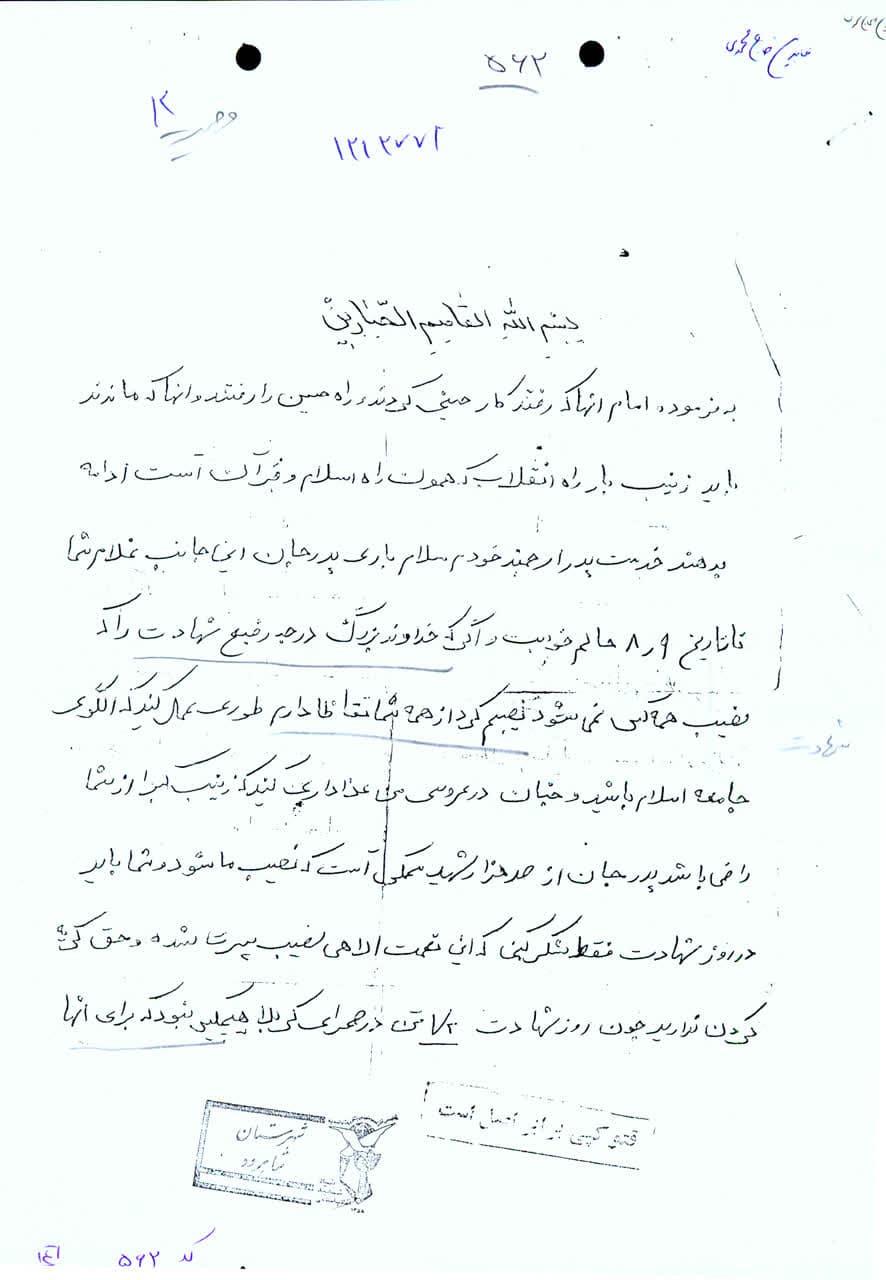 ۵۶۲
وصیت
۱۲۱۲۷۷۲
بسم الله القاصم الجبارین
به فرموده امام انها که رفتند کار حسینی کردند و راه حسین را رفتند و انها که ماندند
باید زینب بار راه انقلاب که همون راه اسلام و قرآن است ادامه
بدهند خدمت پدر ارجمند خودم سلام باری پدر جان این جانب غلام شما
تا تاریخ ۸٫۹ حالم خوب است و اگر که خداوند بزرگ درجه رفیع شهادت را که
نصیب همه کس نمی شود نصیبم کرد از همه شما تقاظا دارم طوری عمل کنید که الگوی
جامعه اسلام باشید و چنان در عروسی من عذاداری کنید که زینب کبرا از شما
راضی باشد پدر جان از صد هزار شهید یکی است که نصیب ما شود و شما باید
در روز شهادت فقط شکر کنی که این نعمت الاهی نصیب پسرت شده و حق گریه
کردن ندارید چون روز شهادت ۷۲ تن در صحرای کربلا هیچکس نبود که برای آنها
شهادت
فتوکپی برابر اصل است
شهرستان
شاهرود
کد ۵۶۲